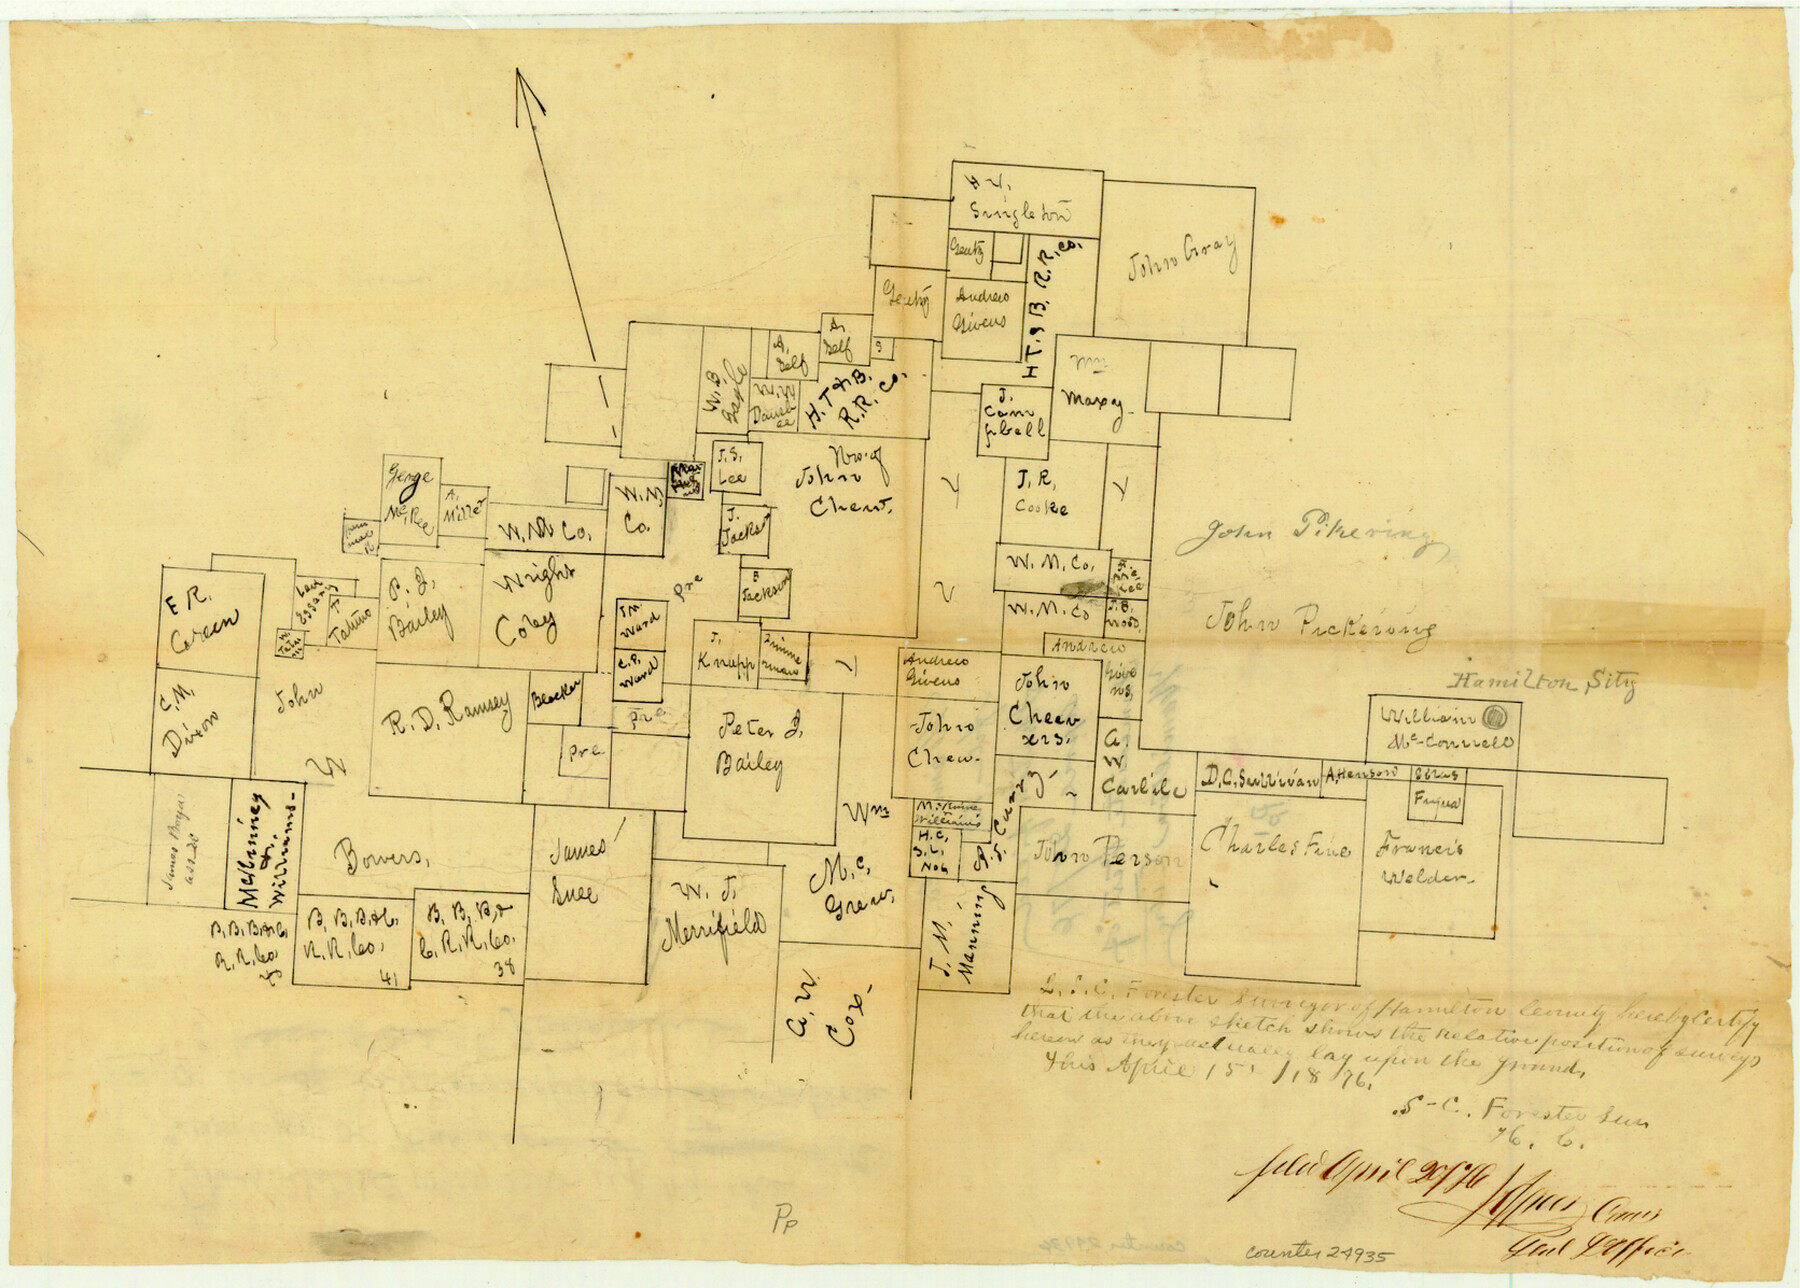 H
Singleton
Gentry
H T & B. R.R. Co.
John Gray
Gentry
Andrew
Givens
A.
Self
A.
Self
W. B.
W. W
H. T & B.
R.R. Co.
Wm
Maxcy
J.
Cam
pbell
J. S.
Lee
No. of
John
Chew.
J. R.
Cooke
George
McRee
A.
Miller
W. M. Co.
W. M.
Co.
J.
Jacks
John Pikering
W. M. Co.
W. M. Co
John Pickering
E R.
Green
P. J.
Bailey
Wright
Coley
Pre
B
Jackson
J. M.
Ward
C. P.
Ward
J.
Knupp
Andrew
Givens
Andrew
Givens
Hamilton Sity
C. M.
Dixon
John
R. D. Ramsey
Blocker
Pre
Pre
Peter J.
Bailey
John
Chew
John
Cheav
ers.
A.
W
Carlile
William
Mc Connell
D. C. Sullivan
A. Henson
Silas
Fuqua
James
McKinney
& Williams
Bowers,
James
Snee
Wm
M. C.
Grew.
W. J.
Merrifield
H. C.
S. L.
No 4
John Person
Charles Fine
Francis
Welder
B. B. B. & C.
R. R. Co.
B. B. B. & C.
R. R. Co.
41
B. B. B. &
C. R. R. Co.
38
J. M.
Manning
A. W.
Cox
I, S. C. Forester Surveyor of Hamilton County hereby certify
that the above sketch shows the relative position of surveys
hereon as they actually lay upon the ground,
this April 15, 1876.
S - C. Forester Sur
H. C.
Filed April 20/76
Genl L Office
Pp
counter 24935